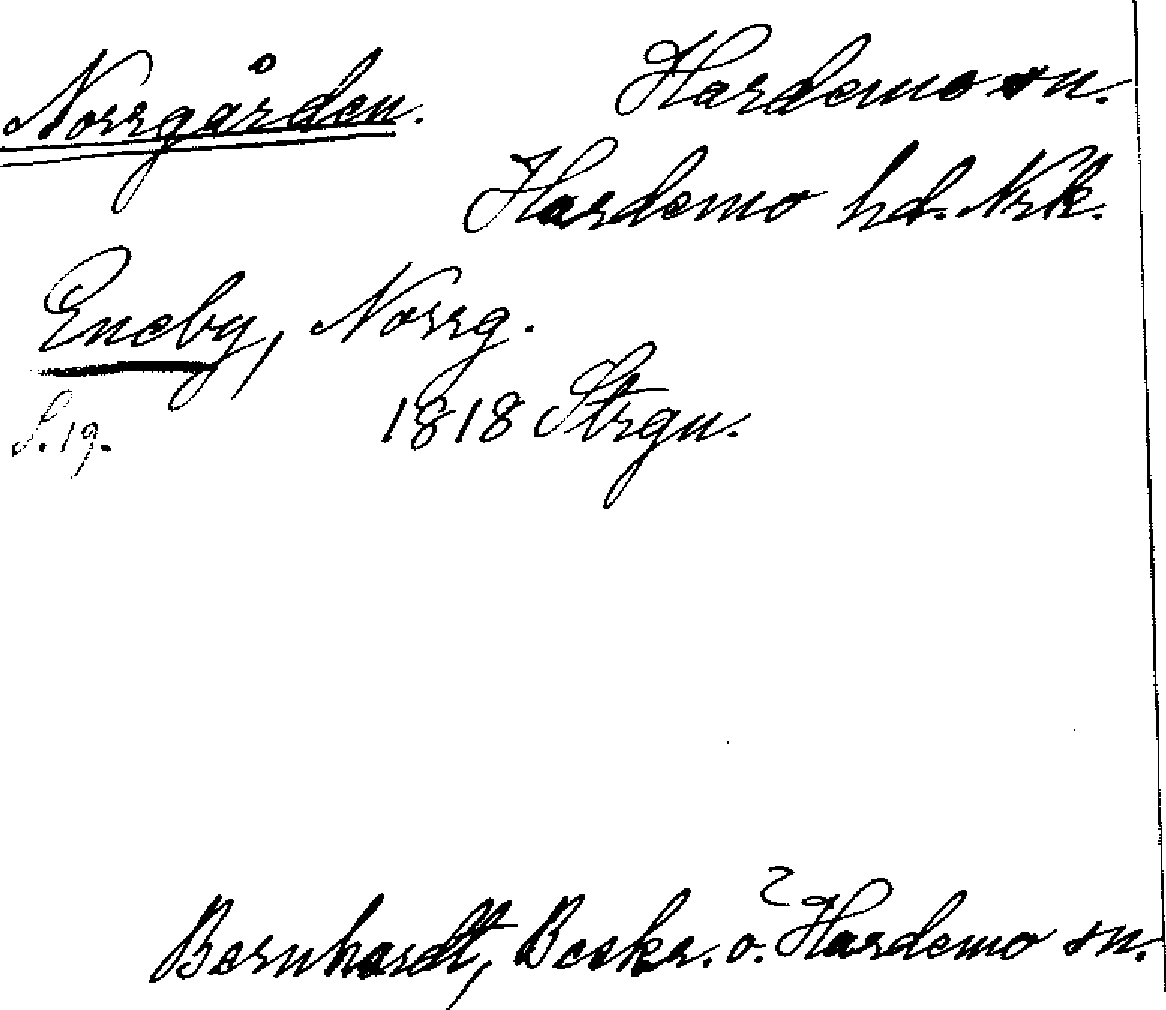 Norrgården. Hardemo sn.
Hardemo hd. Nrk.
Eneby, Norrg.
S. 19. 1818 Strgn.
Bernhardt, Beskr. o. Hardemo sn.